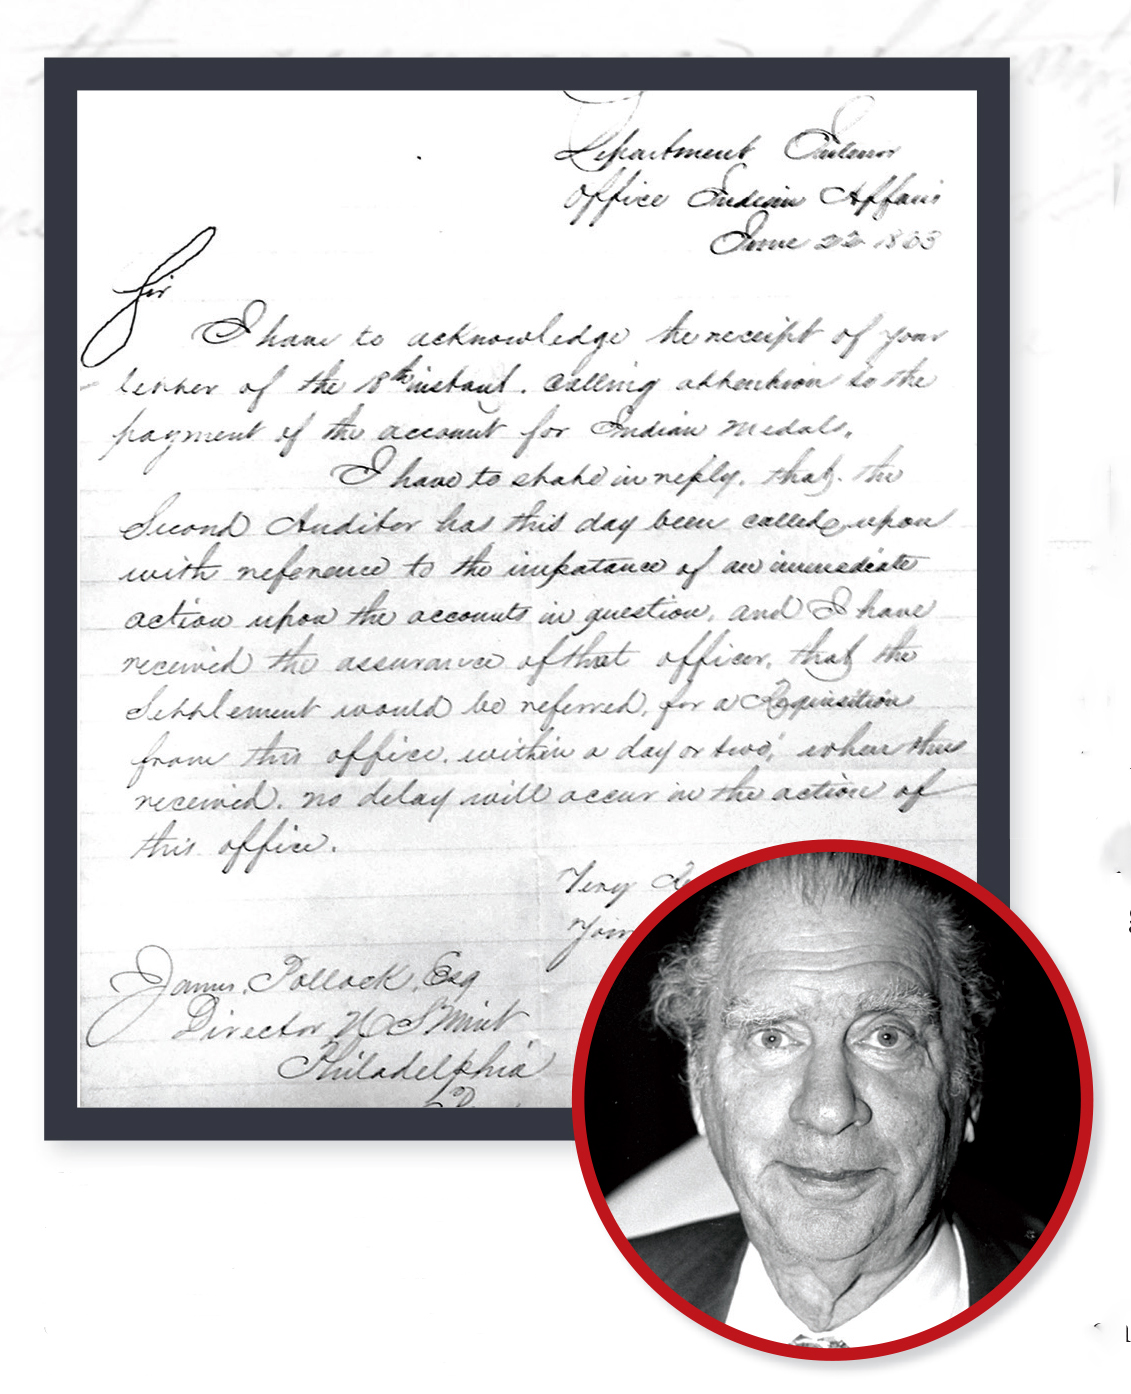 Department Interior
Office Indian Affairs
June 22 1863
Sir
I have to acknowledge the receipt of your
letter of the 18th instant. calling attention to the
payment of the account for Indian Medals.
I have to state in reply. that. the
Second Auditor has this day been called upon
with reference to the impatance of an immediate
action upon the accounts in question, and I have
received the assurance of that officer, that the
Settlement would be referred, for a Requisition
from this office. within a day or two; when thus
received. no delay will occur in the action of
this office.
Very
Your
James Pollock, Esq
Director U S Mint
Philadelphia